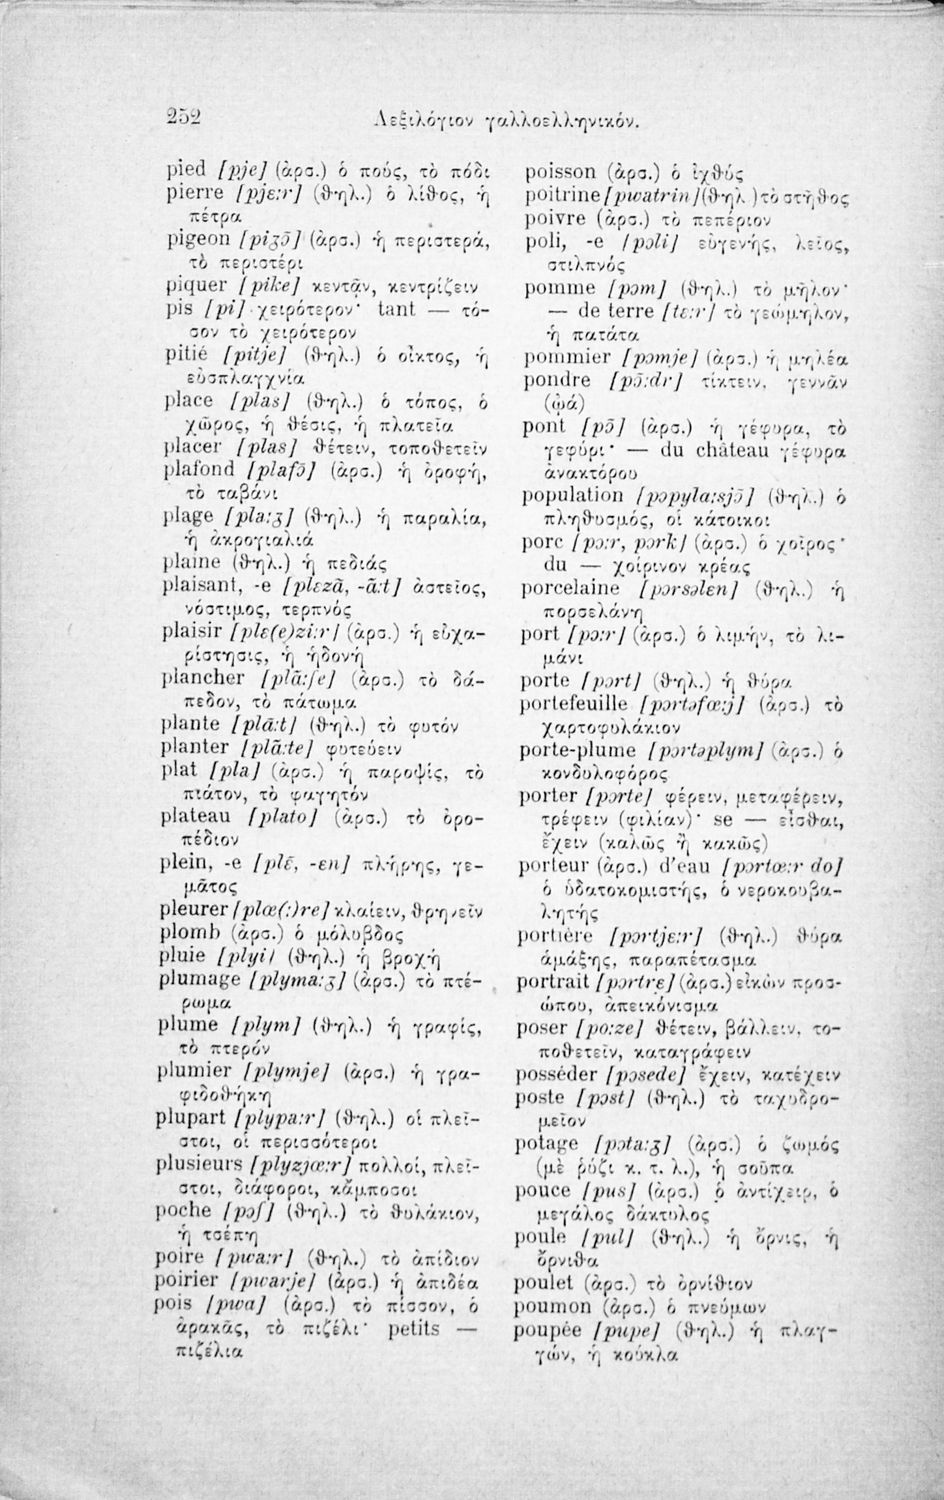 252
Λεξιλόγιον γαλλοελληνικόν.
pied [pje] (ἀρσ.) ὁ πούς, τὸ πόδι
pierre [pjɛ:r] (ϑηλ.) ὁ λίϑος, ἡ
πέτρα
pigeon [piʒɔ̃] (ἀρσ.) ἡ περιστερά,
τὸ περιστέρι
piquer [pike] κεντᾶν, κεντρίζειν
pis [pi] χειρότερον· tant — τό-
σον τὸ χειρότερον
pitié [pitje] (ϑηλ.) ὁ οἶκτος, ἡ
εὐσπλαγχνία
place [plas] (ϑηλ.) ὁ τόπος, ὁ
χῶρος, ἡ ϑέσις, ἡ πλατεῖα
placer [plas] ϑέτειν, τοποϑετεῖν
plafond [plafɔ̃] (ἀρσ.) ἡ ὀροφή,
τὸ ταβάνι
plage [pla:ʒ] (ϑηλ.) ἡ παραλία,
ἡ ἀκρογιαλιά
plaine (ϑηλ.) ἡ πεδιάς
plaisant, -e [plɛzɑ̃, -ɑ̃:t] ἀστεῖος,
νόστιμος, τερπνός
plaisir [plɛ(e)zi:r] (ἀρσ.) ἡ εὐχα-
ρίστησις, ἡ ἡδονή
plancher [plɑ̃:ʃe] (ἀρσ.) τὸ δά-
πεδον, τὸ πάτωμα
plante [plɑ̃:t] (ϑηλ.) τὸ φυτόν
planter [plɑ̃:te] φυτεύειν
plat [pla] (ἀρσ.) ἡ παροψίς, τὸ
πιάτον, τὸ φαγητόν
plateau [plato] (ἀρσ.) τὸ ὀρο-
πέδιον
plein, -e [plɛ̃, -ɛn] πλήρης, γε-
μᾶτος
pleurer [plœ(:)re] κλαίειν, ϑρηνεῖν
plomb (ἀρσ.) ὁ μόλυβδος
pluie [plyi] (ϑηλ.) ἡ βροχή
plumage [plyma:ʒ] (ἀρσ.) τὸ πτέ-
ρωμα
plume [plym] (ϑηλ.) ἡ γραφίς,
τὸ πτερόν
plumier [plymje] (ἀρσ.) ἡ γρα-
φιδοϑήκη
plupart [plypa:r] (ϑηλ.) οἱ πλεῖ-
στοι, οἱ περισσότεροι
plusieurs [plyzjœ:r] πολλοί, πλεῖ-
στοι, διάφοροι, κἄμποσοι
poche [pɔʃ] (ϑηλ.) τὸ ϑυλάκιον,
ἡ τσέπη
poire [pwa:r] (ϑηλ.) τὸ ἀπίδιον
poirier [pwarje] (ἀρσ.) ἡ ἀπιδέα
pois [pwa] (ἀρσ.) τὸ πίσσον, ὁ
ἀρακᾶς, τὸ πιζέλι· petits —
πιζέλια
poisson (ἀρσ.) ὁ ἰχϑύς
poitrine [pwatrin] (ϑηλ.) τὸ στῆϑος
poivre (ἀρσ.) τὸ πεπέριον
poli, -e [pɔli] εὐγενής, λεῖος,
στιλπνός
pomme [pɔm] (ϑηλ.) τὸ μῆλον·
— de terre [tɛ:r] τὸ γεώμηλον,
ἡ πατάτα
pommier [pɔmje] (ἀρσ.) ἡ μηλέα
pondre [pɔ̃:dr] τίκτειν, γεννᾶν
(ᾠά)
pont [pɔ̃] (ἀρσ.) ἡ γέφυρα, τὸ
γεφύρι· — du château γέφυρα
ἀνακτόρου
population [pɔpyla:sjɔ̃] (ϑηλ.) ὁ
πληϑυσμός, οἱ κάτοικοι
porc [pɔ:r, pɔrk] (ἀρσ.) ὁ χοῖρος·
du — χοίρινον κρέας
porcelaine [pɔrsəlɛn] (ϑηλ.) ἡ
πορσελάνη
port [pɔ:r] (ἀρσ.) ὁ λιμήν, τὸ λι-
μάνι
porte [pɔrt] (ϑηλ.) ἡ ϑύρα
portefeuille [pɔrtəfœ:j] (ἀρσ.) τὸ
χαρτοφυλάκιον
porte-plume [pɔrtəplym] (ἀρσ.) ὁ
κονδυλοφόρος
porter [pɔrte] φέρειν, μεταφέρειν,
τρέφειν (φιλίαν)· se — εἶσϑαι,
ἔχειν (καλῶς ἢ κακῶς)
porteur (ἀρσ.) d'eau [pɔrtœ:r do]
ὁ ὑδατοκομιστής, ὁ νεροκουβα-
λητής
portière [pɔrtjɛ:r] (ϑηλ.) ϑύρα
ἁμάξης, παραπέτασμα
portrait [pɔrtrɛ] (ἀρσ.) εἰκὼν προσ-
ώπου, ἀπεικόνισμα
poser [po:ze] ϑέτειν, βάλλειν, το-
ποϑετεῖν, καταγράφειν
posséder [pɔsede] ἔχειν, κατέχειν
poste [pɔst] (ϑηλ.) τὸ ταχυδρο-
μεῖον
potage [pɔta:ʒ] (ἀρσ.) ὁ ζωμός
(μὲ ῥύζι κ. τ. λ.), ἡ σοῦπα
pouce [pus] (ἀρσ.) ὁ ἀντίχειρ, ὁ
μεγάλος δάκτυλος
poule [pul] (ϑηλ.) ἡ ὄρνις, ἡ
ὄρνιϑα
poulet (ἀρσ.) τὸ ὀρνίϑιον
poumon (ἀρσ.) ὁ πνεύμων
poupée [pupe] (ϑηλ.) ἡ πλαγ-
γών, ἡ κούκλα